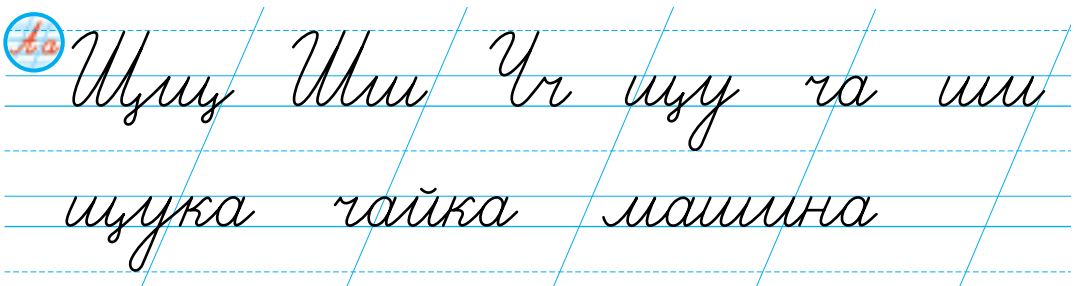 Аа Щщ Шш Чч щу ча ши
щука чайка машина